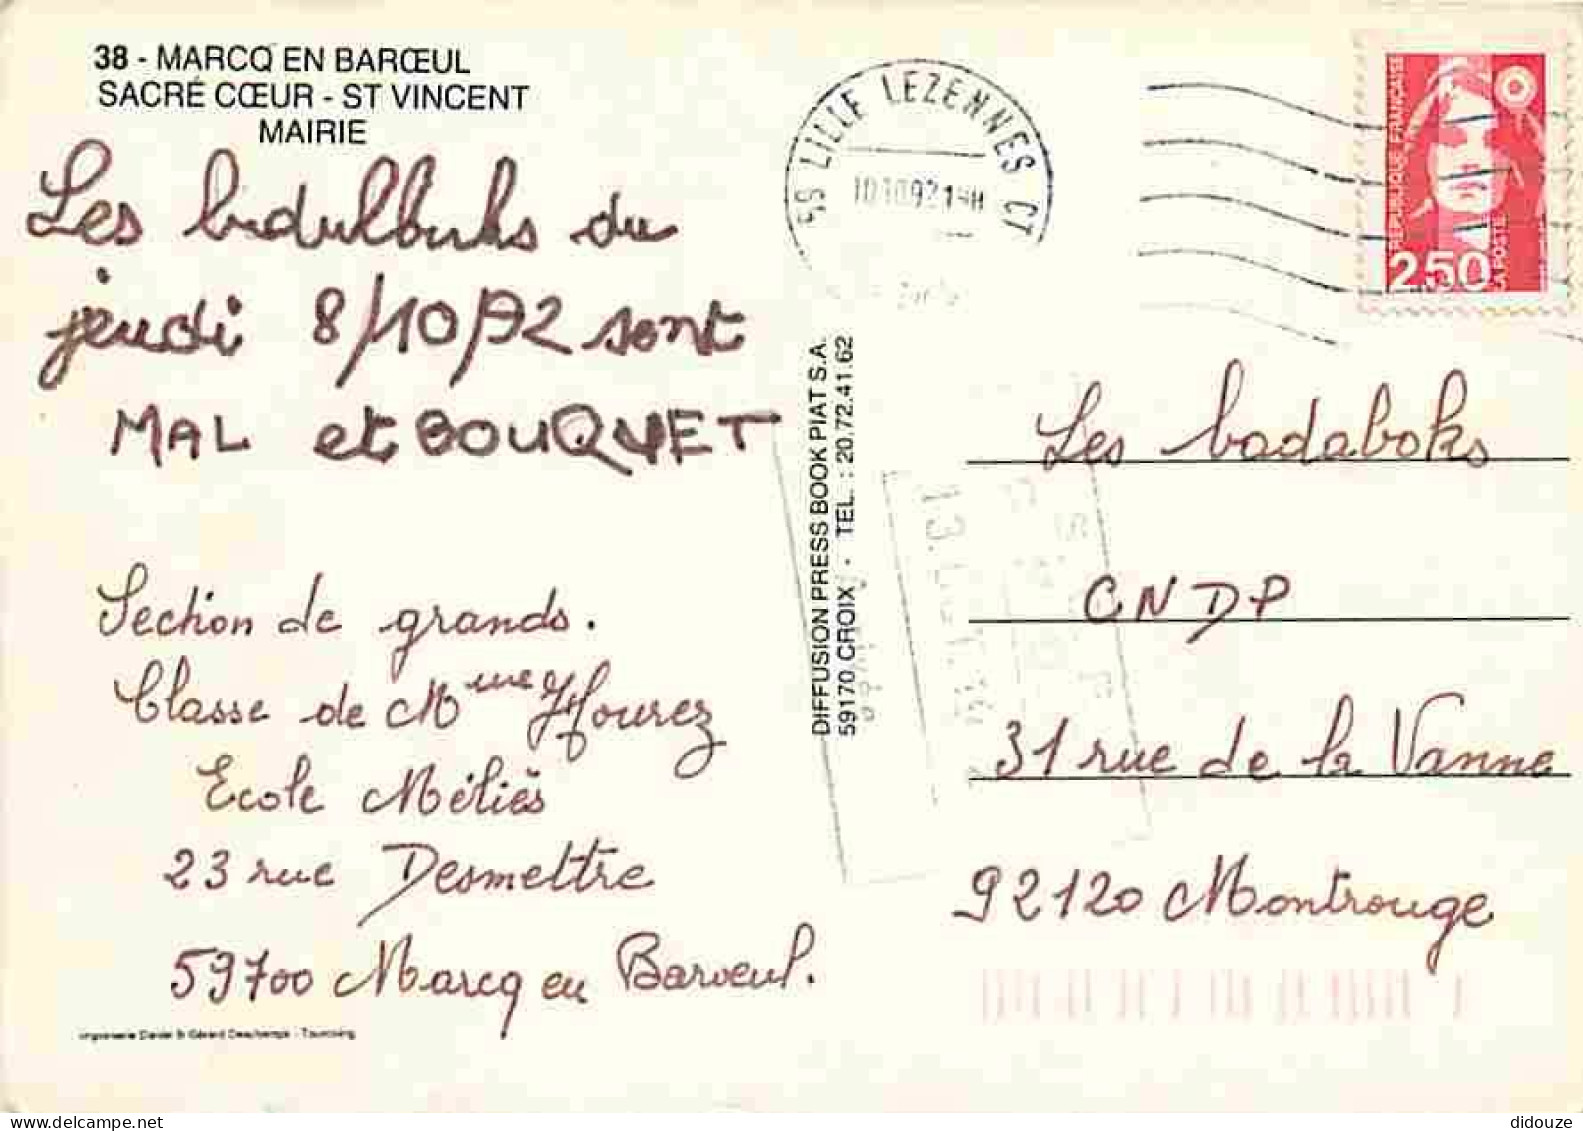 38 - MARCQ EN BARŒUL
SACRÉ CŒUR - ST VINCENT
MAIRIE
Les badulbuks du
jeudi 8/10/92 sont
MAL et BOUQUET
Section de grands.
Classe de Mme Hourez
Ecole Méliès
23 rue Desmettre
59700 Marcq en Baroeul.
Imprimerie Daniel & Gérard Deschamps - Tourcoing
DIFFUSION PRESS BOOK PIAT S.A.
59170 CROIX - TEL. : 20.72.41.62
59 LILLE LEZENNES CT
10.10.92
REPUBLIQUE FRANÇAISE
LA POSTE
2,50
Les badaboks
CNDP
31 rue de la Vanne
92120 Montrouge
didouze